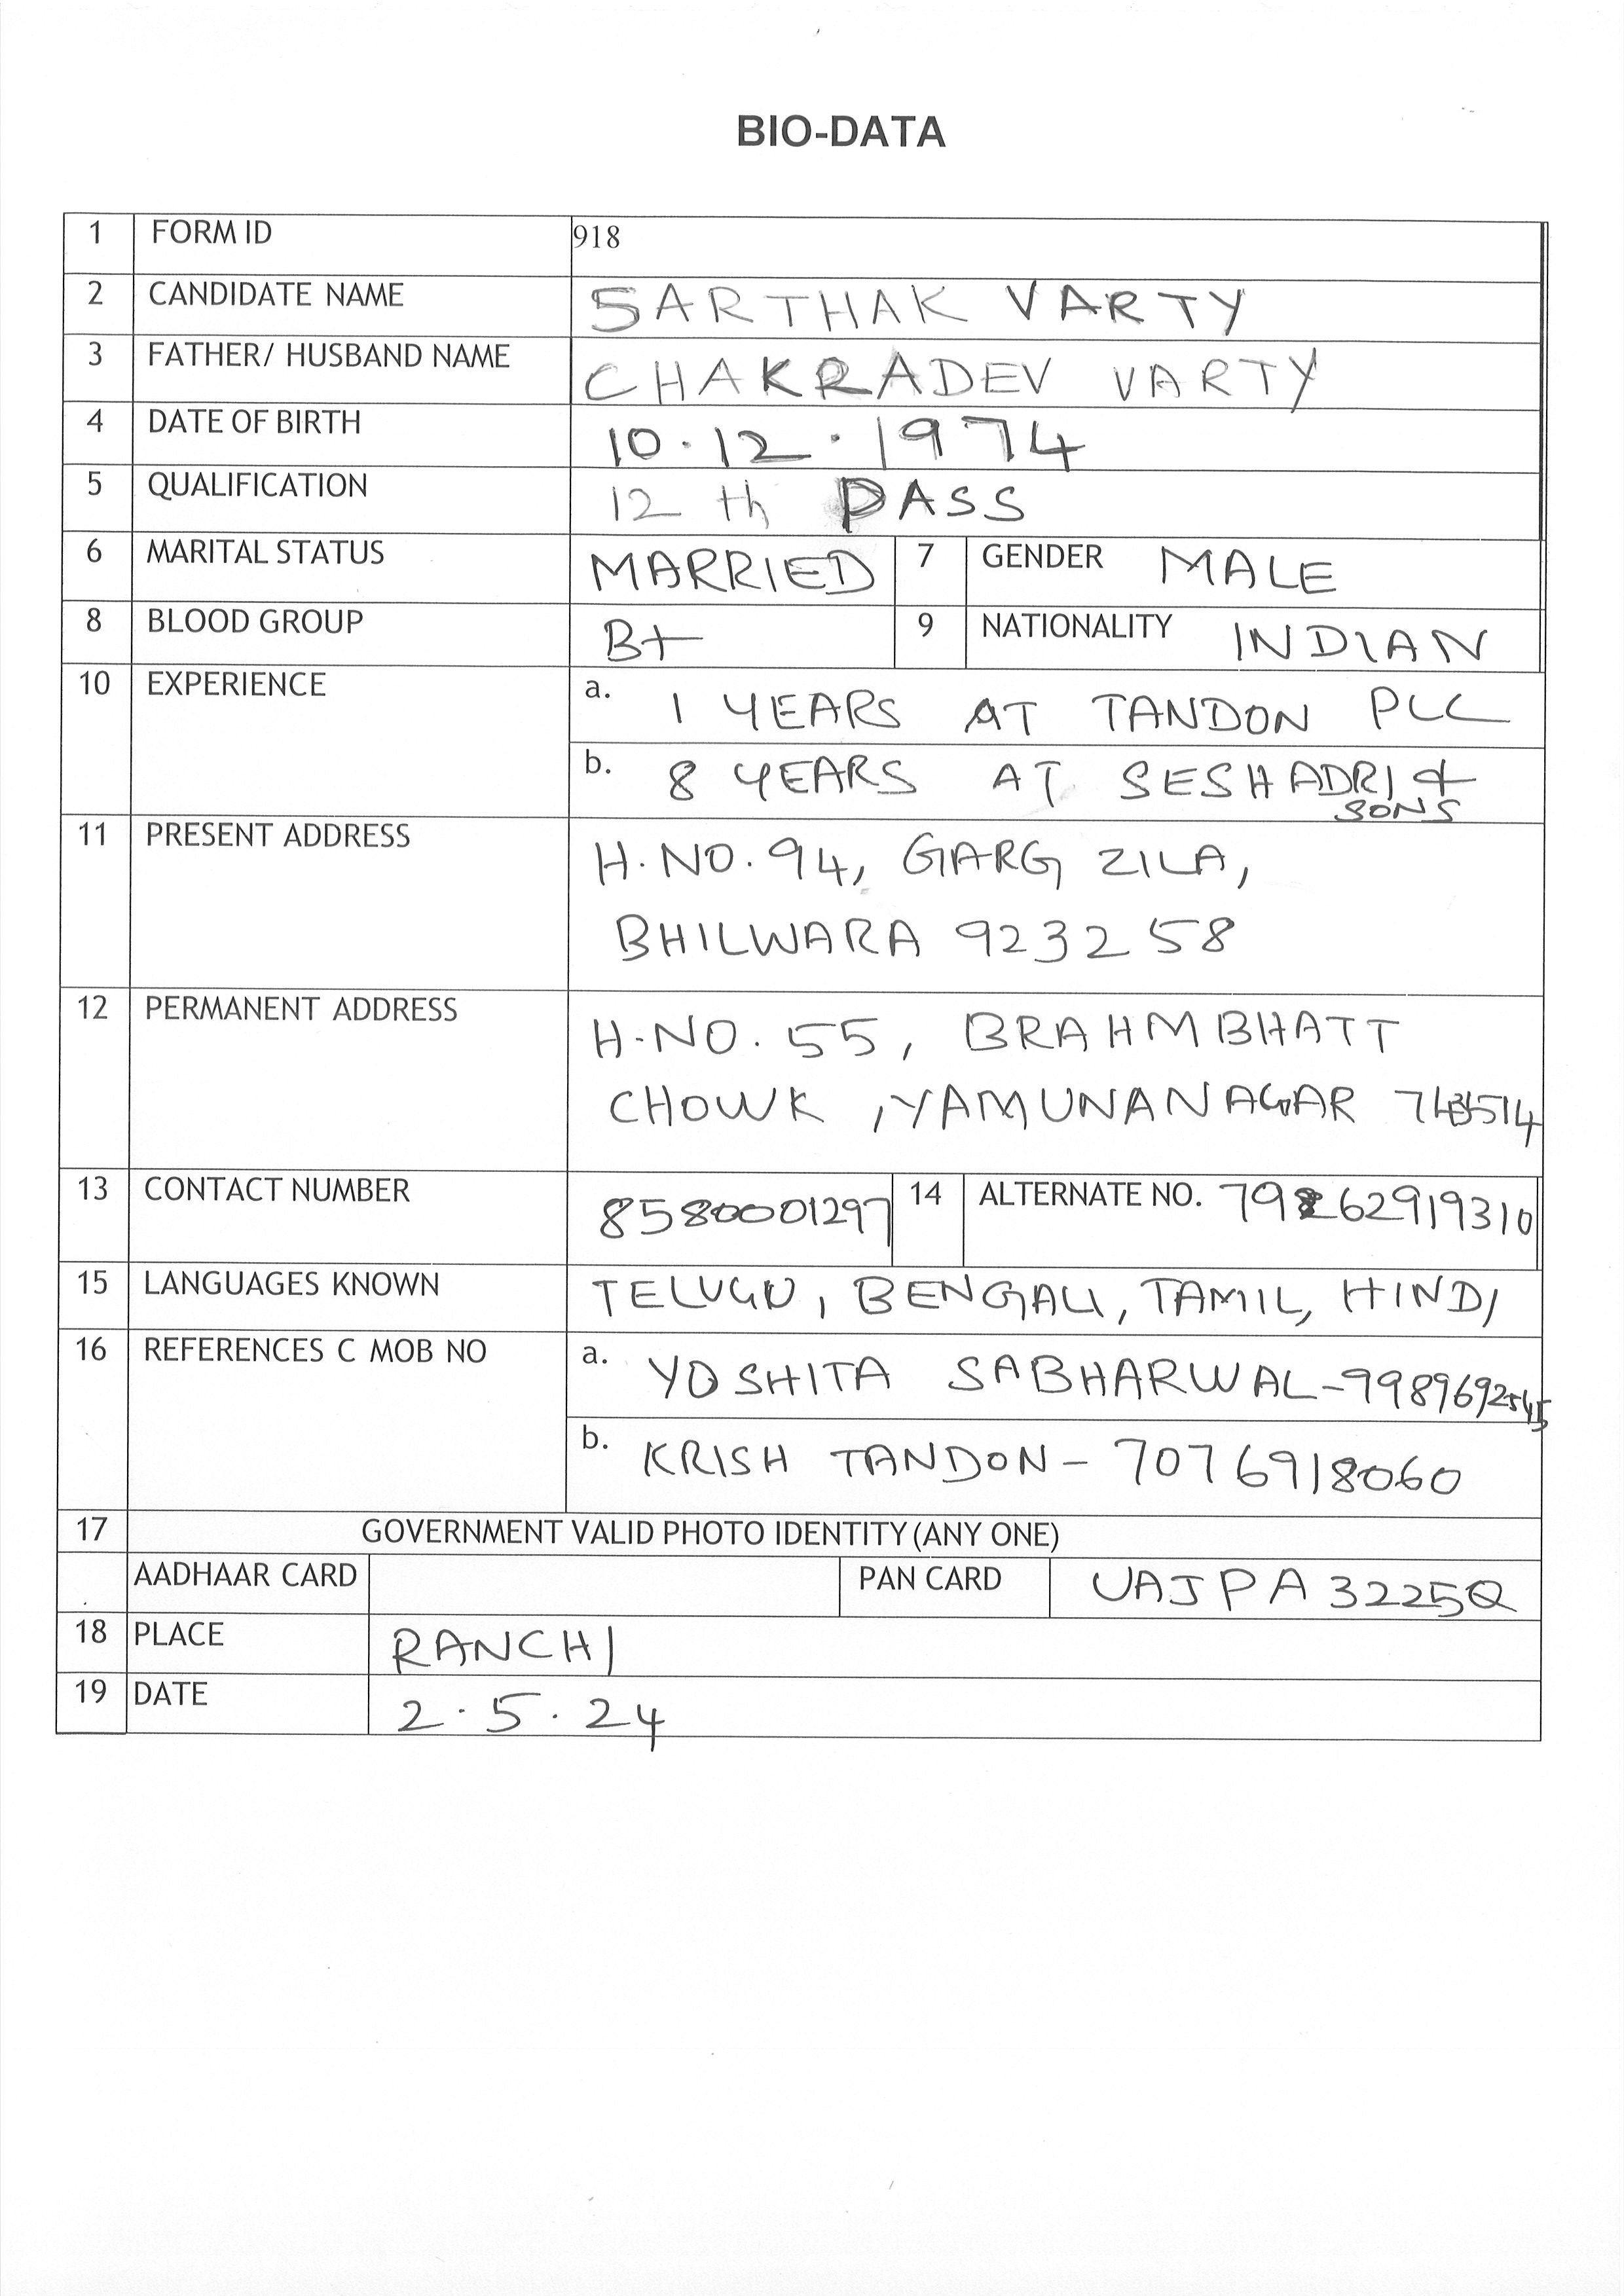 BIO-DATA
1 FORM ID 918
2 CANDIDATE NAME SARTHAK VARTY
3 FATHER/ HUSBAND NAME CHAKRADEV VARTY
4 DATE OF BIRTH 10.12.1974
5 QUALIFICATION 12 th PASS
6 MARITAL STATUS MARRIED 7 GENDER MALE
8 BLOOD GROUP B+ 9 NATIONALITY INDIAN
10 EXPERIENCE a. 1 YEARS AT TANDON PLC
b. 8 YEARS AT SESHADRI &
SONS
11 PRESENT ADDRESS H.NO.94, GARG ZILA,
BHILWARA 923258
12 PERMANENT ADDRESS H.NO.55, BRAHMBHATT
CHOWK, YAMUNANAGAR
13 CONTACT NUMBER 8580001297 14 ALTERNATE NO.
15 LANGUAGES KNOWN TELUGU, BENGALI, TAMIL, HINDI
16 REFERENCES C MOB NO a. YOSHITA SABHARWAL-
b. KRISH TANDON- 7076918060
17 GOVERNMENT VALID PHOTO IDENTITY (ANY ONE)
AADHAAR CARD PAN CARD UAJPA3225Q
18 PLACE RANCHI
19 DATE 2.5.24